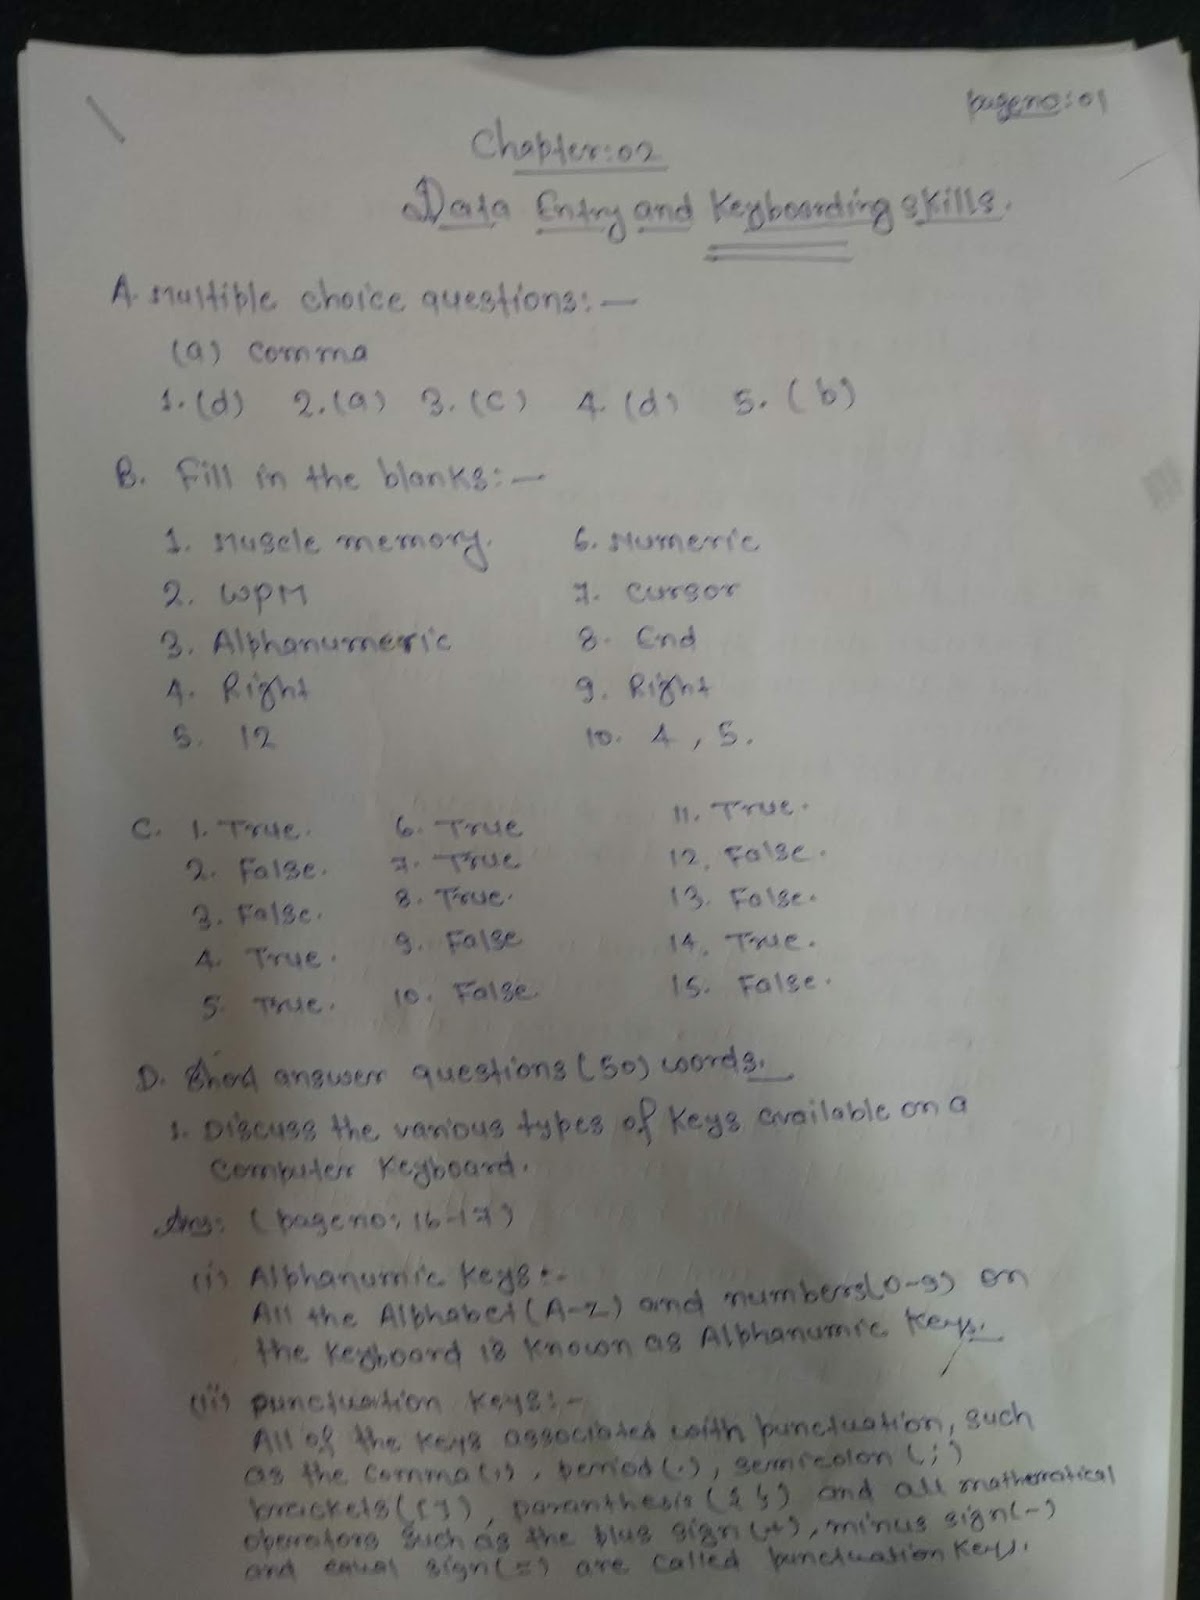 Pageno:01
Chapter:02
Data Entry and Keyboarding skills.
A. Multiple choice questions:—
(a) comma
1. (d) 2. (a) 3. (c) 4. (d) 5. (b)
B. Fill in the blanks:—
1. Muscle memory. 6. Numeric
2. WPM 7. Cursor
3. Alphanumeric 8. End
4. Right 9. Right
5. 12 10. 4, 5.
C. 1. True. 6. True 11. True.
2. False. 7. True 12. False.
3. False. 8. True. 13. False.
4. True. 9. False 14. True.
5. True. 10. False. 15. False.
D. Short answer questions (50) words.
1. Discuss the various types of Keys available on a
Computer Keyboard.
Ans: (pageno: 16-17)
(i) Alphanumic Keys:-
All the Alphabet (A-Z) and numbers(0-9) on
the Keyboard is known as Alphanumic Keys.
(ii) punctuation Keys:-
All of the Keys associated with punctuation, such
as the comma(,), period(.), semicolon (;)
brackets([]), paranthesis({}) and all mathematical
operators such as the plus sign(+), minus sign(-)
and equal sign(=) are called punctuation Keys.